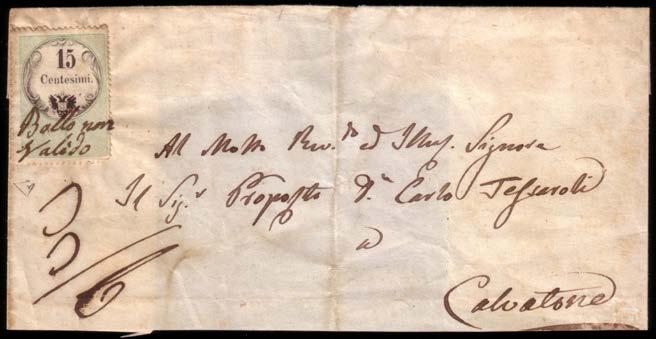 15
Centesimi.
Bollo non
Valido
Al Molto Rev.do ed Illus. Signore
Il Sig.r Proposto D.n Carlo Tessaroli
a
Calvatone